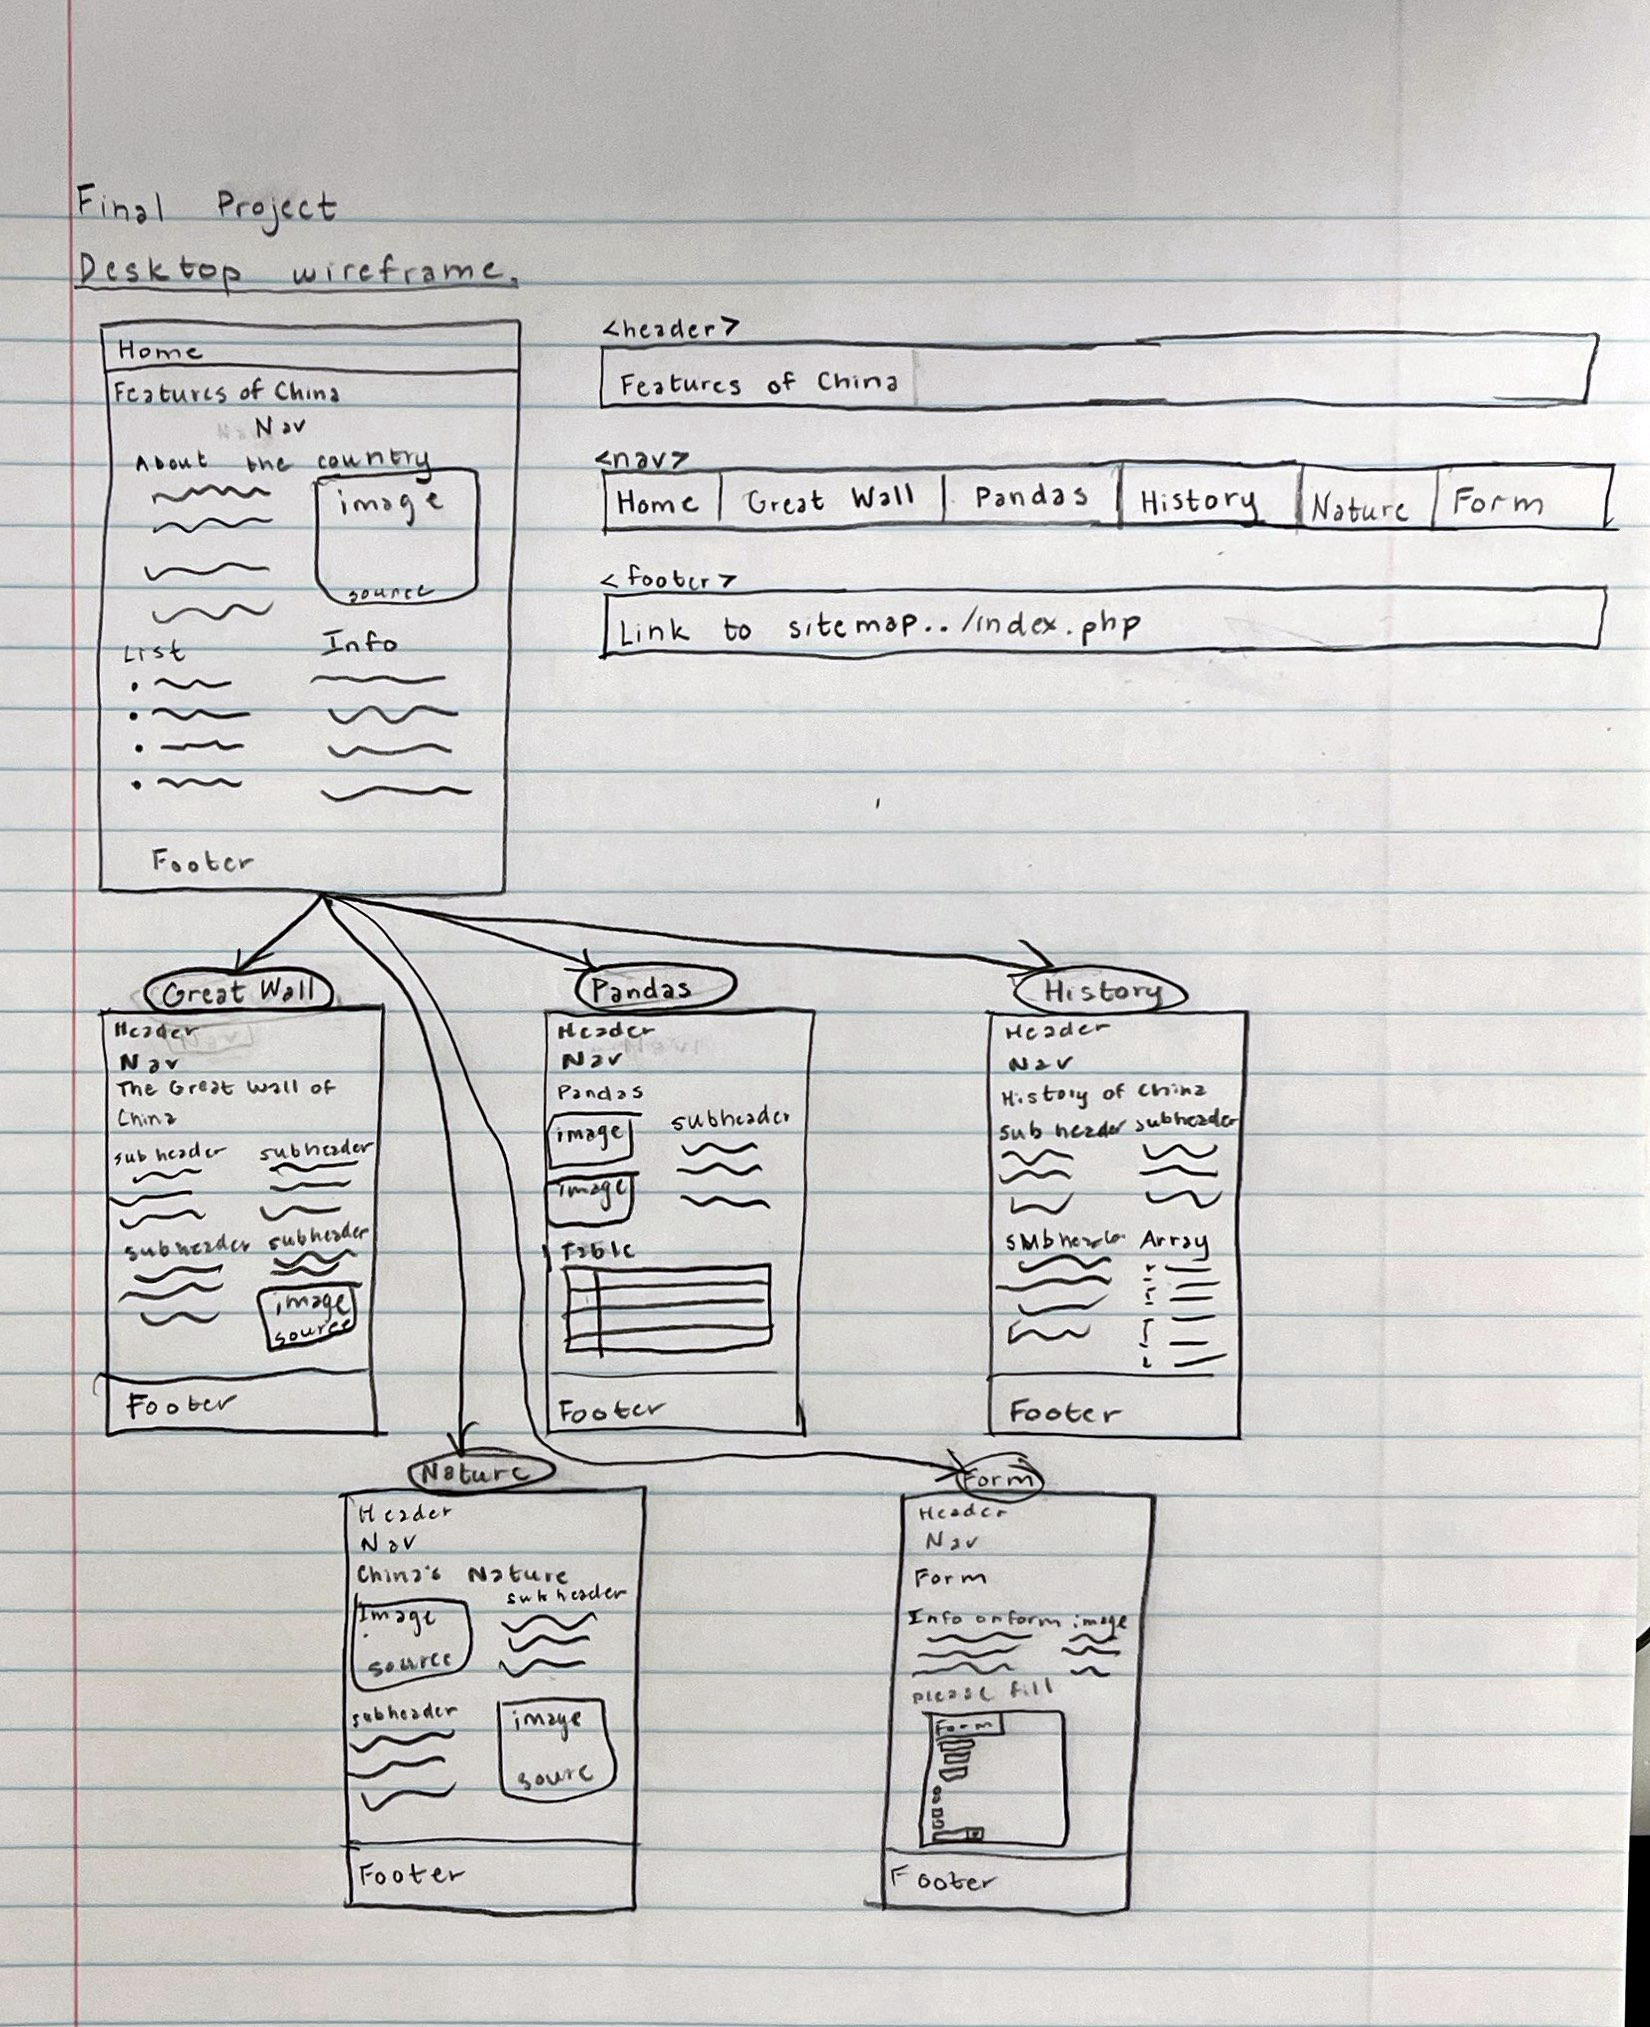 Final Project
Desktop wireframe.
Home
Features of China
Nav
About the country
image
source
List
Info
Footer
<header>
Features of China
<nav>
Home Great Wall Pandas History Nature Form
<footer>
Link to sitemap../index.php
Great Wall
Header
Nav
The Great Wall of
China
subheader subheader
subheader subheader
image
source
Footer
Pandas
Header
Nav
Pandas
image
subheader
image
Table
Footer
History
Header
Nav
History of China
sub header subheader
subheader Array
Footer
Nature
Header
Nav
China's Nature
subheader
Image
source
subheader
image
sourc
Footer
Form
Header
Nav
Form
Info on form image
please fill
Form
Footer